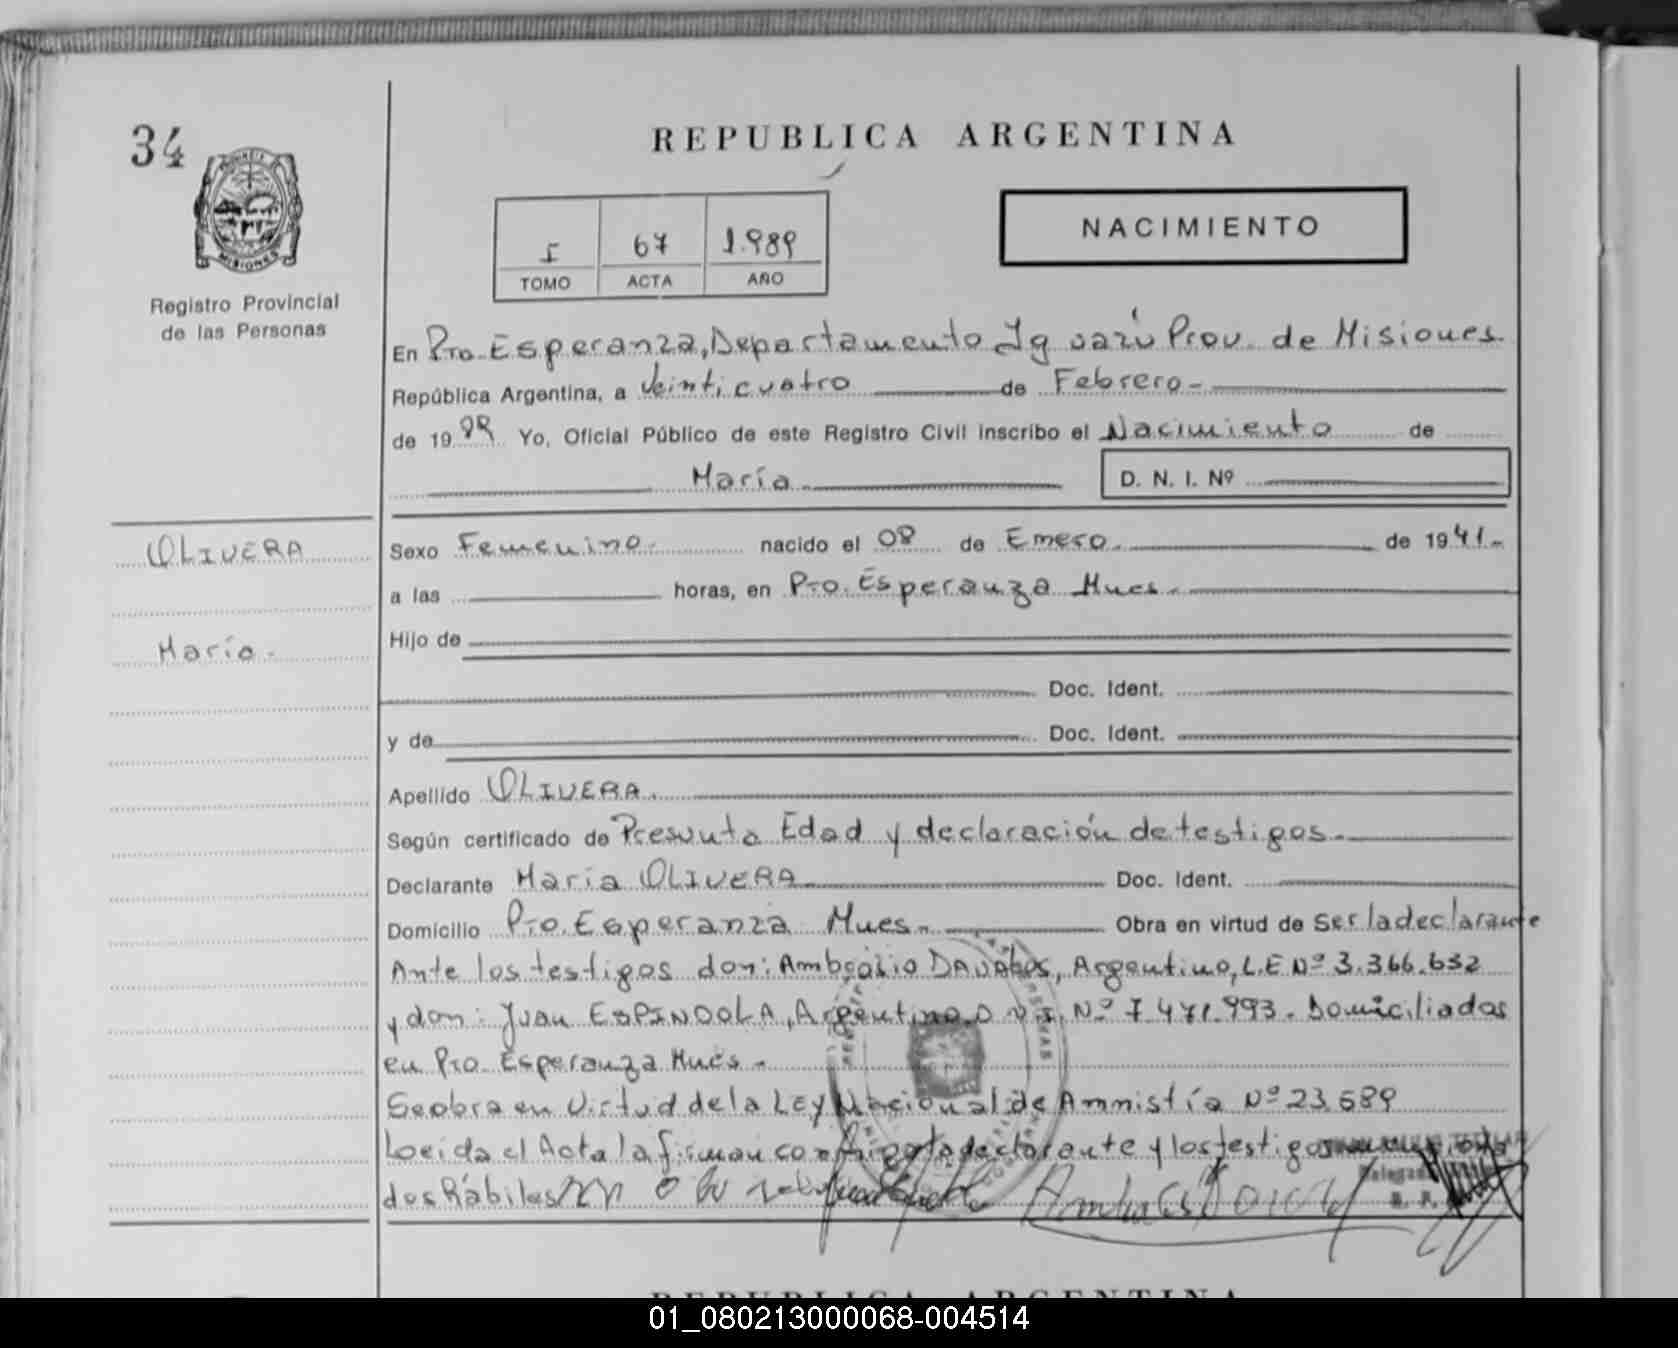 34
REPUBLICA ARGENTINA
PROVINCIA DE MISIONES
Registro Provincial
de las Personas
I 67 1.989
TOMO ACTA AÑO
NACIMIENTO
En Pto. Esperanza, Departamento Iguazú Prov. de Misiones
República Argentina, a Veinticuatro de Febrero
de 1989 Yo, Oficial Público de este Registro Civil inscribo el Nacimiento de
María D. N. I. Nº
OLIVERA
María
Sexo Femenino nacido el 08 de Enero de 1941
a las horas, en Pto. Esperanza Mnes
Hijo de
Doc. Ident.
y de Doc. Ident.
Apellido OLIVERA
Según certificado de Presunta Edad y declaración de testigos
Declarante María OLIVERA Doc. Ident.
Domicilio Pto. Esperanza Mnes. Obra en virtud de ser la declarante
Ante los testigos don: Ambrosio DAVALOS, Argentino, L.E Nº 3.366.632
y don: Juan ESPINDOLA, Argentino D.N.I. Nº 7.471.993. Domiciliados
en Pto. Esperanza Mnes.
Se obra en Virtud de la Ley Nacional de Amnistía Nº 23.689
Leida el Acta la firman conmigo la declarante y los testigos
dos hábiles
REPUBLICA ARGENTINA
01_080213000068-004514